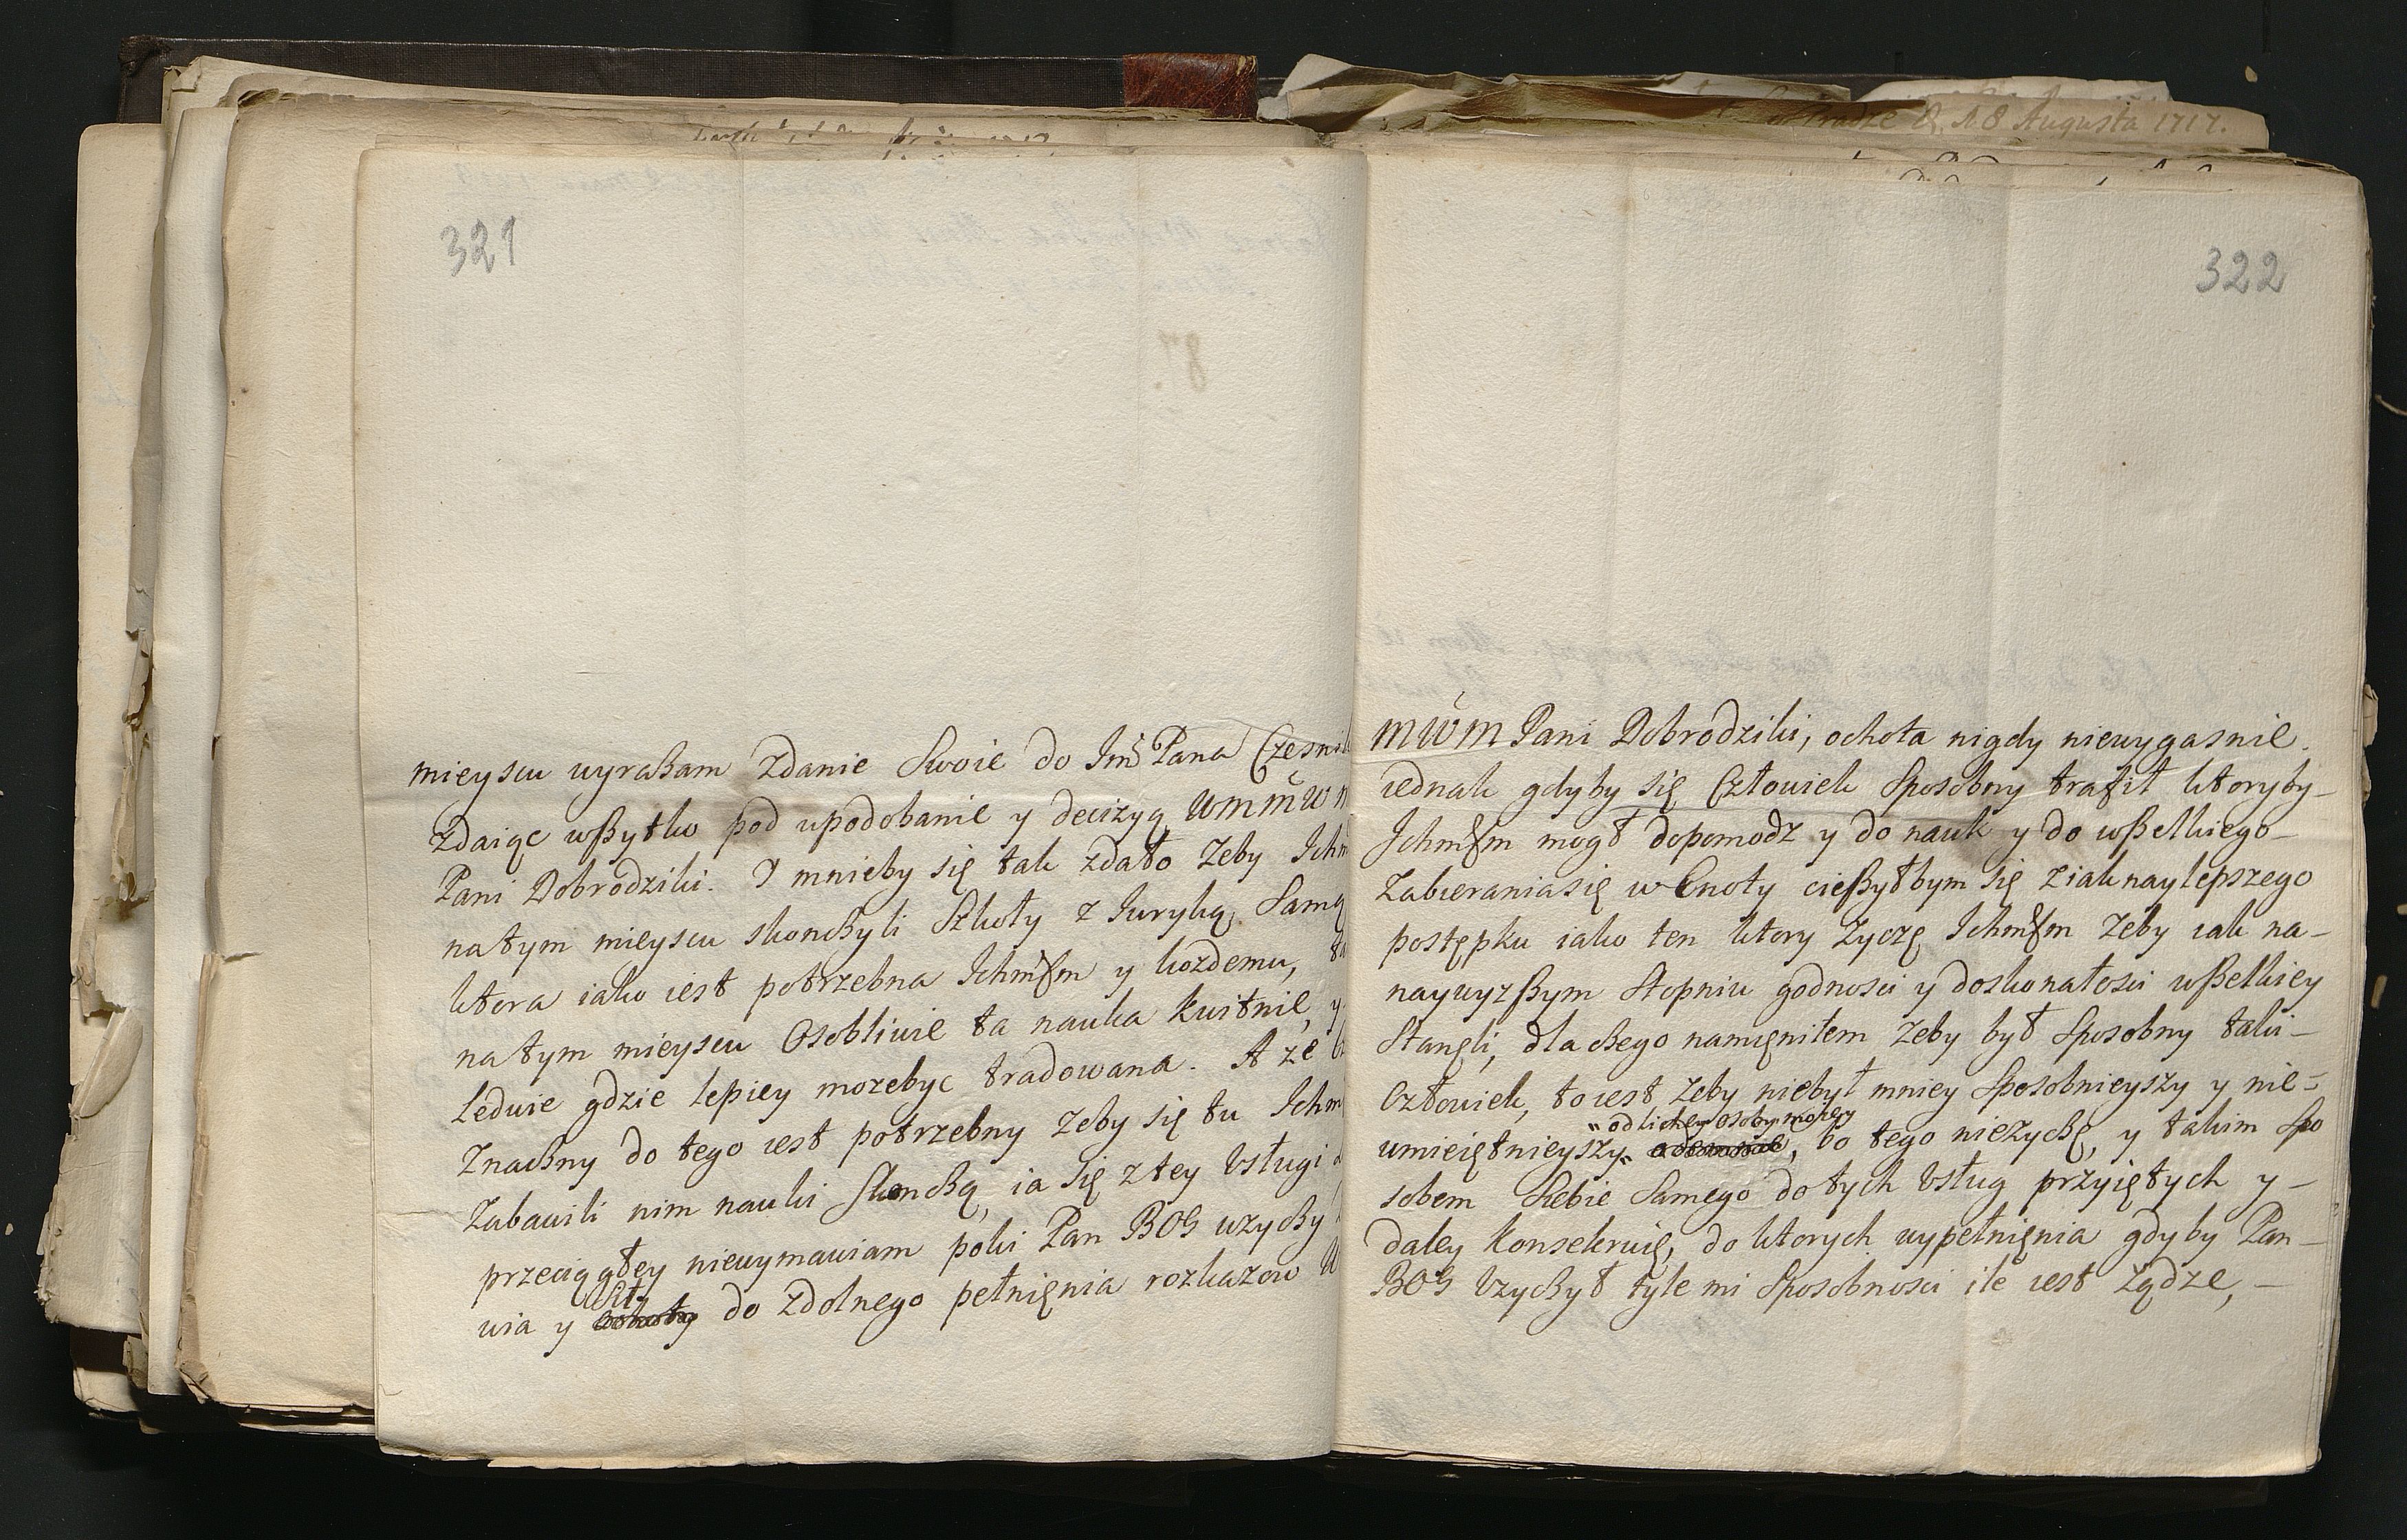 w Pradze d. 18 Augusta 1717.
321
mieyscu wyrażam zdanie Swoie do Jmć Pana Czesnik
zdaiąc wßytko pod upodobanie y decizyą WMMWM
Pani Dobrodziki. I mnieby się tak zdało Zeby Ichm
na tym mieyscu skonczyli Szkoły z Iuryką Samą
ktora iako iest potrzebna Ichmściom y kozdemu,
na tym mieyscu Osobliwie ta nauka kwitnie, y
ledwie gdzie lepiey mozebyc tradowana. A ze
Znaczny do tego iest potrzebny zeby się tu Ichm
Zabawili nim nauki skonczą, ia się z tey Usługi
przeciągłey niewymawiam poki Pan BOG uzyczy
Sił
wia y ochoty do zdolnego pełnięnia rozkazow W
322
MWM Pani Dobrodziki, ochota nigdy niewygasnie.
iednak gdyby się Człowiek Sposobny trafił ktoryby-
Ichmściom mogł dopomodz y do nauk y do wßelkiego-
Zabieraniasię w Cnoty cießyłbym się z iaknaylepszego
postępku iako ten ktory Zyczę Ichmściom Zeby iak na-
naywyzßym Stopniu godnosci y doskonałosci wßelkiey
Stanęli, dla czego namięniłem Zeby był Sposobny taki-
Człowiek, to iest Zeby niebył mniey Sposobnieyszy y nie=
" od lichey osoby moiey
umieiętnieyszy " odemnie, bo tego nieżyczę, y takim Spo
sobem Siebie Samego do tych Usług przyiętych y-
daley Konsekruię, do ktorych wypełnięnia gdyby Pan-
BOG Uzyczył tyle mi Sposobnosci ile iest Ządze,-